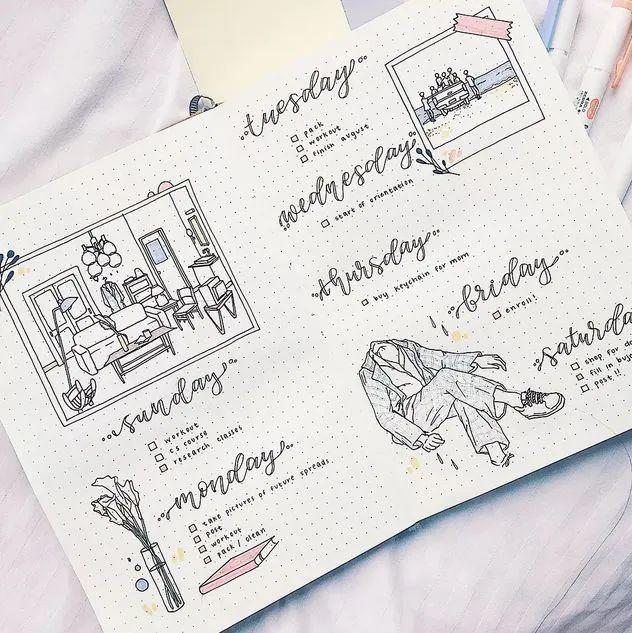 sunday
workout
cs course
research classes
monday
take pictures of future spreads
post
workout
pack / clean
tuesday
pack
workout
finish august
wednesday
start of orientation
thursday
buy keychain for mom
friday
enroll!
saturda
shop for do
fill in
post!!